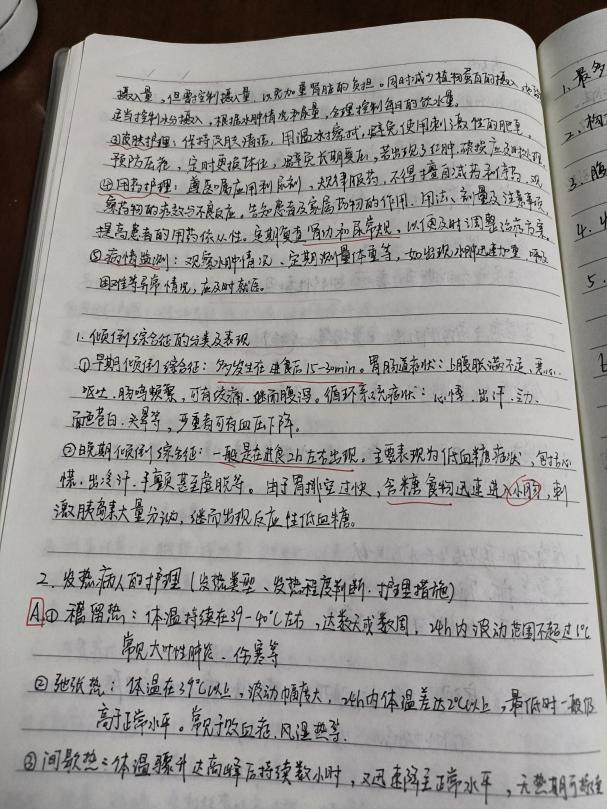 摄入量,但需控制摄入量,以免加重肾脏的负担。同时减少植物蛋白的摄入
适当控制水分摄入,根据水肿情况和尿量,合理控制每日的饮水量。
③皮肤护理:保持皮肤清洁,用温水擦拭,避免使用刺激性的肥皂。
预防压疮,定时更换体位,避免长期受压,若出现了红肿、破损应及时处理
④用药护理:遵医嘱应用利尿剂,规律服药,不得擅自试药和停药,观
察药物的疗效与不良反应,告知患者及家属药物的作用、用法、剂量及注意事项,
提高患者的用药依从性。定期复查肾功和尿常规,以便及时调整治疗方案。
⑤病情监测:观察水肿情况,定期测量体重等,如出现水肿迅速加重、呼吸
困难等异常情况,应及时就医。
1. 倾倒综合征的分类及表现
①早期倾倒综合征:多发生在进食后15-30min。胃肠道症状:上腹胀满不适、恶心、
呕吐、肠鸣频繁,可有绞痛,继而腹泻。循环系统症状:心悸、出汗、
面色苍白、头晕等,严重者可有血压下降。
②晚期倾倒综合征:一般是在进食2h左右出现。主要表现为低血糖症状,包括心
慌、出冷汗、手颤甚至虚脱等。由于胃排空过快,含糖食物迅速进入小肠,刺
激胰岛素大量分泌,继而出现反应性低血糖。
2. 发热病人的护理(发热类型、发热程度判断、护理措施)
A ①稽留热:体温持续在39-40℃左右,达数天或数周,24h内波动范围不超过1℃
常见大叶性肺炎、伤寒等
②弛张热:体温在39℃以上,波动幅度大,24h内体温差达2℃以上,最低时一般仍
高于正常水平。常见于败血症、风湿热等.
③间歇热:体温骤升达高峰后持续数小时,又迅速降至正常水平,无热期可持续
1. 最多
2.
3. 腹
4.
5.